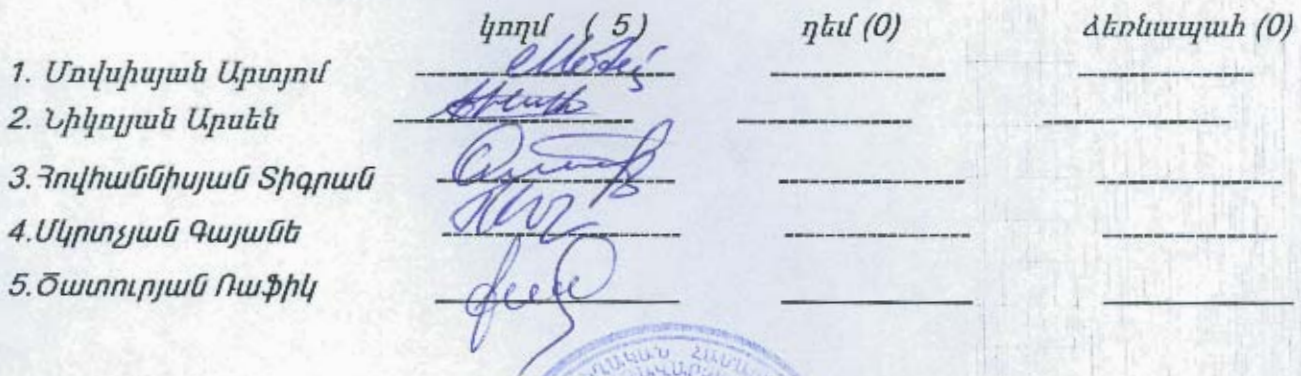 կողմ ( 5) դեմ (0) ձեռնապահ (0)
1. Մովսիսյան Արտյոմ
2. Նիկոյան Արսեն
3.Հովհաննիսյան Տիգրան
4.Մկրտչյան Գայանե
5.Ծատուրյան Ռաֆիկ